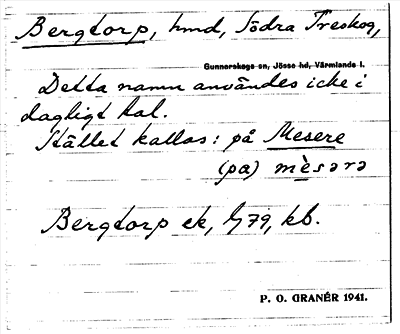 Bergtorp, hmd, Södra Treskog,
Gunnarskogs sn, Jösse hd, Värmlands l.
Detta namn användes icke i
dagligt tal.
Stället kallas: på Mesere
(pa) mèsərə
Bergtorp ek, G79, kb.
P. O. GRANÉR 1941.